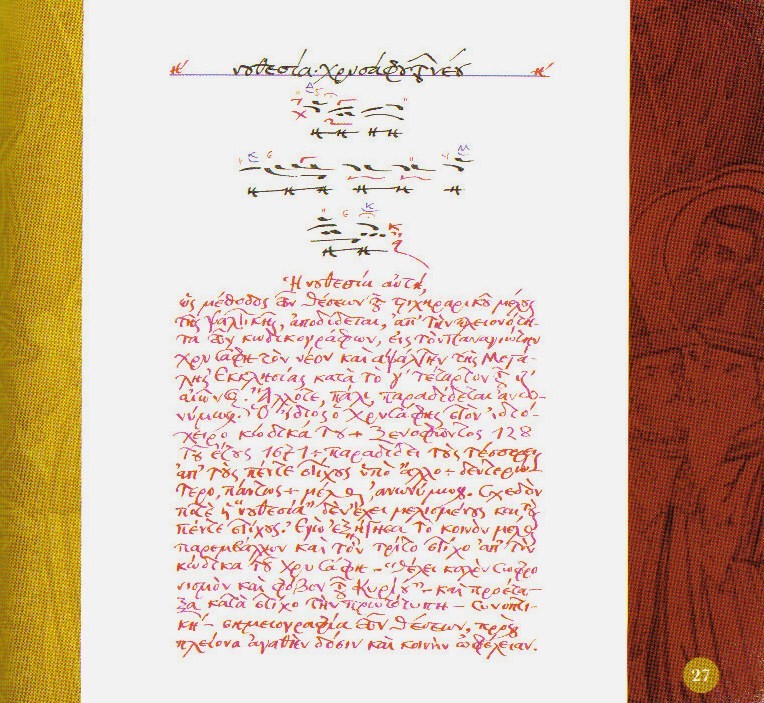 νουθεσία· χρυσάφου τοῦ νέου
Ἡ νουθεσία αὐτή,
ὡς μέθοδος τῶν θέσεων τοῦ στιχηραρικοῦ μέλους
τῆς ψαλτικῆς, ἀποδίδεται, ἀπ' τὴν πλειονότη-
τα τῶν κωδικογράφων, εἰς τὸν Παναγιώτην
Χρυσάφην τὸν νέον καὶ πρωτοψάλτην τῆς Μεγά-
λης Ἐκκλησίας κατὰ τὸ γ' τέταρτον τοῦ ιζ'
αἰῶνος. Ἄλλοτε, πάλι, παραδίδεται ἀνω-
νύμως. Ὁ ἴδιος ὁ Χρυσάφης στὸν ἰδιό-
χειρο κώδικά του Ξενοφῶντος 128
τοῦ ἔτους 1671 παραδίδει τοὺς τέσσερεις
ἀπ' τοὺς πέντε στίχους ὑπὸ ἄλλο δευτεριω-
τερο, πάντως μέλος, ἀνωνύμως. Σχεδὸν
ποτὲ ἡ "νουθεσία" δὲν ἔχει μελισμένους καὶ τοὺς
πέντε στίχους. Ἐγὼ ἐξήγησα τὸ κοινὸν μέλος
παρεμβάλλων καὶ τὸν τρίτο στίχο ἀπ' τὸν
κώδικα τοῦ Χρυσάφη - "Θέλει καλὴν σωφρο
νισμὸν καὶ φόβον τοῦ Κυρίου" - καὶ προέτα-
ξα κατὰ στίχο τὴν πρωτότυπη - συνοπτι-
κή - σημειογραφία τῶν θέσεων, πρὸς
πλείονα ἀγαθὴν δόσιν καὶ κοινὴν ὠφέλειαν.
27